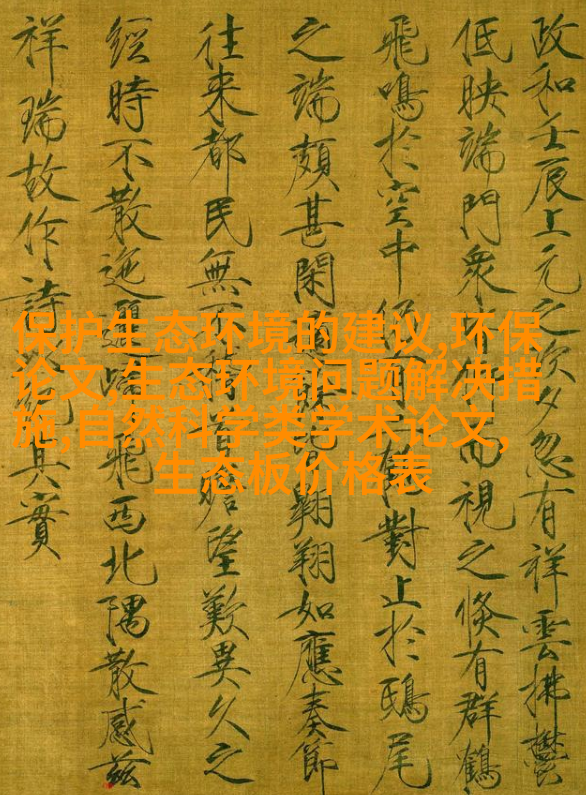 政和壬辰上元之次夕忽有祥雲拂鬱
低映端門衆而視之倏有群鶴
飛鳴於空中對止於鴟尾
之端頗甚閑翱翔如應奏節
往來都民無不望歎異久之
經時不散迤邐飛西北隅散感茲
祥瑞故作詩其實
保护生态环境的建议,环保
论文,生态环境问题解决措
施,自然科学类学术论文,
生态板价格表